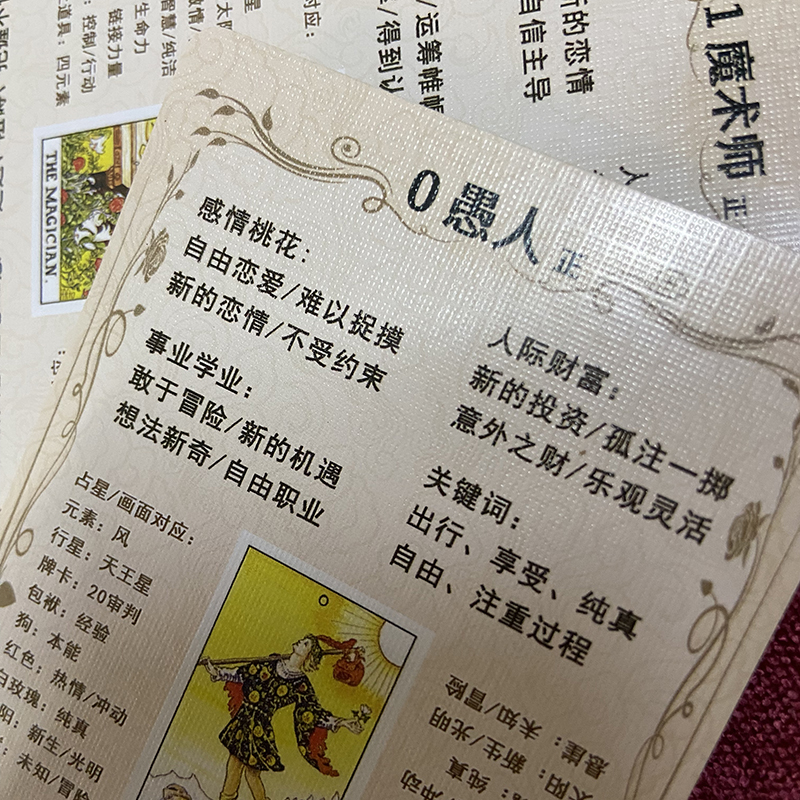 0 愚人 正
感情桃花：
自由恋爱/难以捉摸
新的恋情/不受约束
事业学业：
敢于冒险/新的机遇
想法新奇/自由职业
人际财富：
新的投资/孤注一掷
意外之财/乐观灵活
关键词：
出行、享受、纯真
自由、注重过程
占星/画面对应：
元素：风
行星：天王星
牌卡：20审判
包袱：经验
狗：本能
红色：热情/冲动
白玫瑰：纯真
阳：新生/光明
：未知/冒险
悬崖：未知/冒险
太阳：新生/光明
：纯真
/冲动
0
1 魔术师 正
新的恋情
自信主导
/运筹帷幄
/得到认
对应：
星
太阳
激情/
智慧/纯洁
生命力
链接力量
：控制/行动
道具：四元素
THE MAGICIAN.